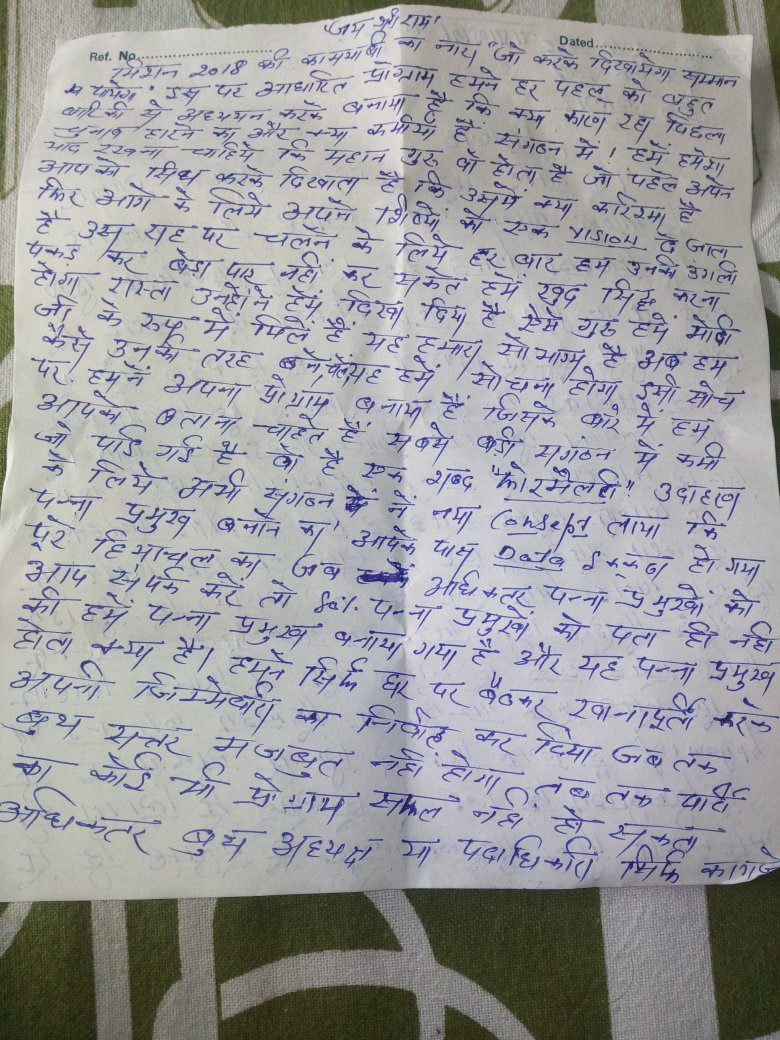 जय श्री राम
Ref. No. Dated
मिशन 2018 की कामयाबी का नारा "जो करके दिखायेगा सम्मान
पायेगा" इस पर आधारित प्रोग्राम हमने हर पहलू को बहुत
बारिकी से अध्ययन करके बनाया है कि क्या कारण रहा पिछला
चुनाव हारने का और क्या कमीया है संगठन में। हमें हमेशा
याद रखना चाहिये कि महान गुरू वो होता है जो पहले अपने
आपको सिध करके दिखाता है कि उसमें क्या करिश्मा है
फिर आगे के लिये अपने शिष्यों को एक VISION दे जाता
है उस राह पर चलने के लिये हर बार हम उनकी उंगली
पकड़ कर बेडा पार नहीं कर सकते हमें खुद सिद्ध करना
होगा रास्ता उन्होंने हमें दिखा दिया है ऐसे गुरू हमें मोदी
जी के रूप में मिले हैं यह हमारा सौभाग्य है अब हम
कैसे उनकी तरह बने यह हमें सोचना होगा इसी सोच
पर हमने अपना प्रोग्राम बनाया है जिसके बारे में हम
आपको बताना चाहते हैं सबसे बडी संगठन में कमी
जो पाई गई है वो है एक शब्द "फोरमैलटी" उदाहरण
के लिये अभी संगठन ने नया Consept लाया कि
पन्ना प्रमुख बनाने का आपके पास Data हो गया
पूरे हिमाचल का जब अधिकतर पन्ना प्रमुखों को
आप संपर्क करें तो 80% पन्ना प्रमुखों को पता ही नहीं
की हमें पन्ना प्रमुख बनाया गया है और यह पन्ना प्रमुख
होता क्या है। हमने सिर्फ घर पर बैठकर खानापूर्ती करके
अपनी जिम्मेवारी का निर्वाह कर दिया जब तक
बुथ सतर मजबुत नहीं होगा तब तक पार्टी
का कोई भी प्रोग्राम सफल नहीं हो सकता
अधिकतर बुथ अध्यक्ष या पदाधिकारी सिर्फ कागजो